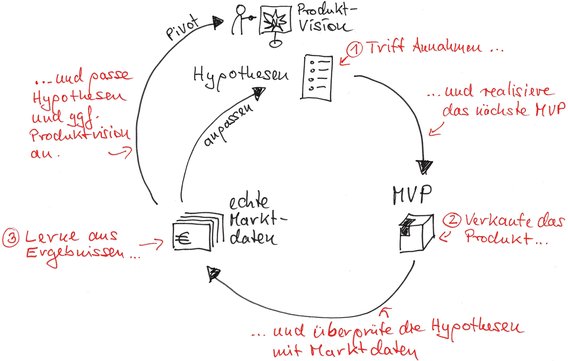 Produkt-
Vision
Pivot
① Triff Annahmen ...
Hypothesen
...und passe
Hypothesen
und ggf.
Produktvision
an.
...und realisiere
das nächste MVP
anpassen
MVP
echte
Markt-
daten
€
② Verkaufe das
Produkt...
③ Lerne aus
Ergebnissen...
...und überprüfe die Hypothesen
mit Marktdaten